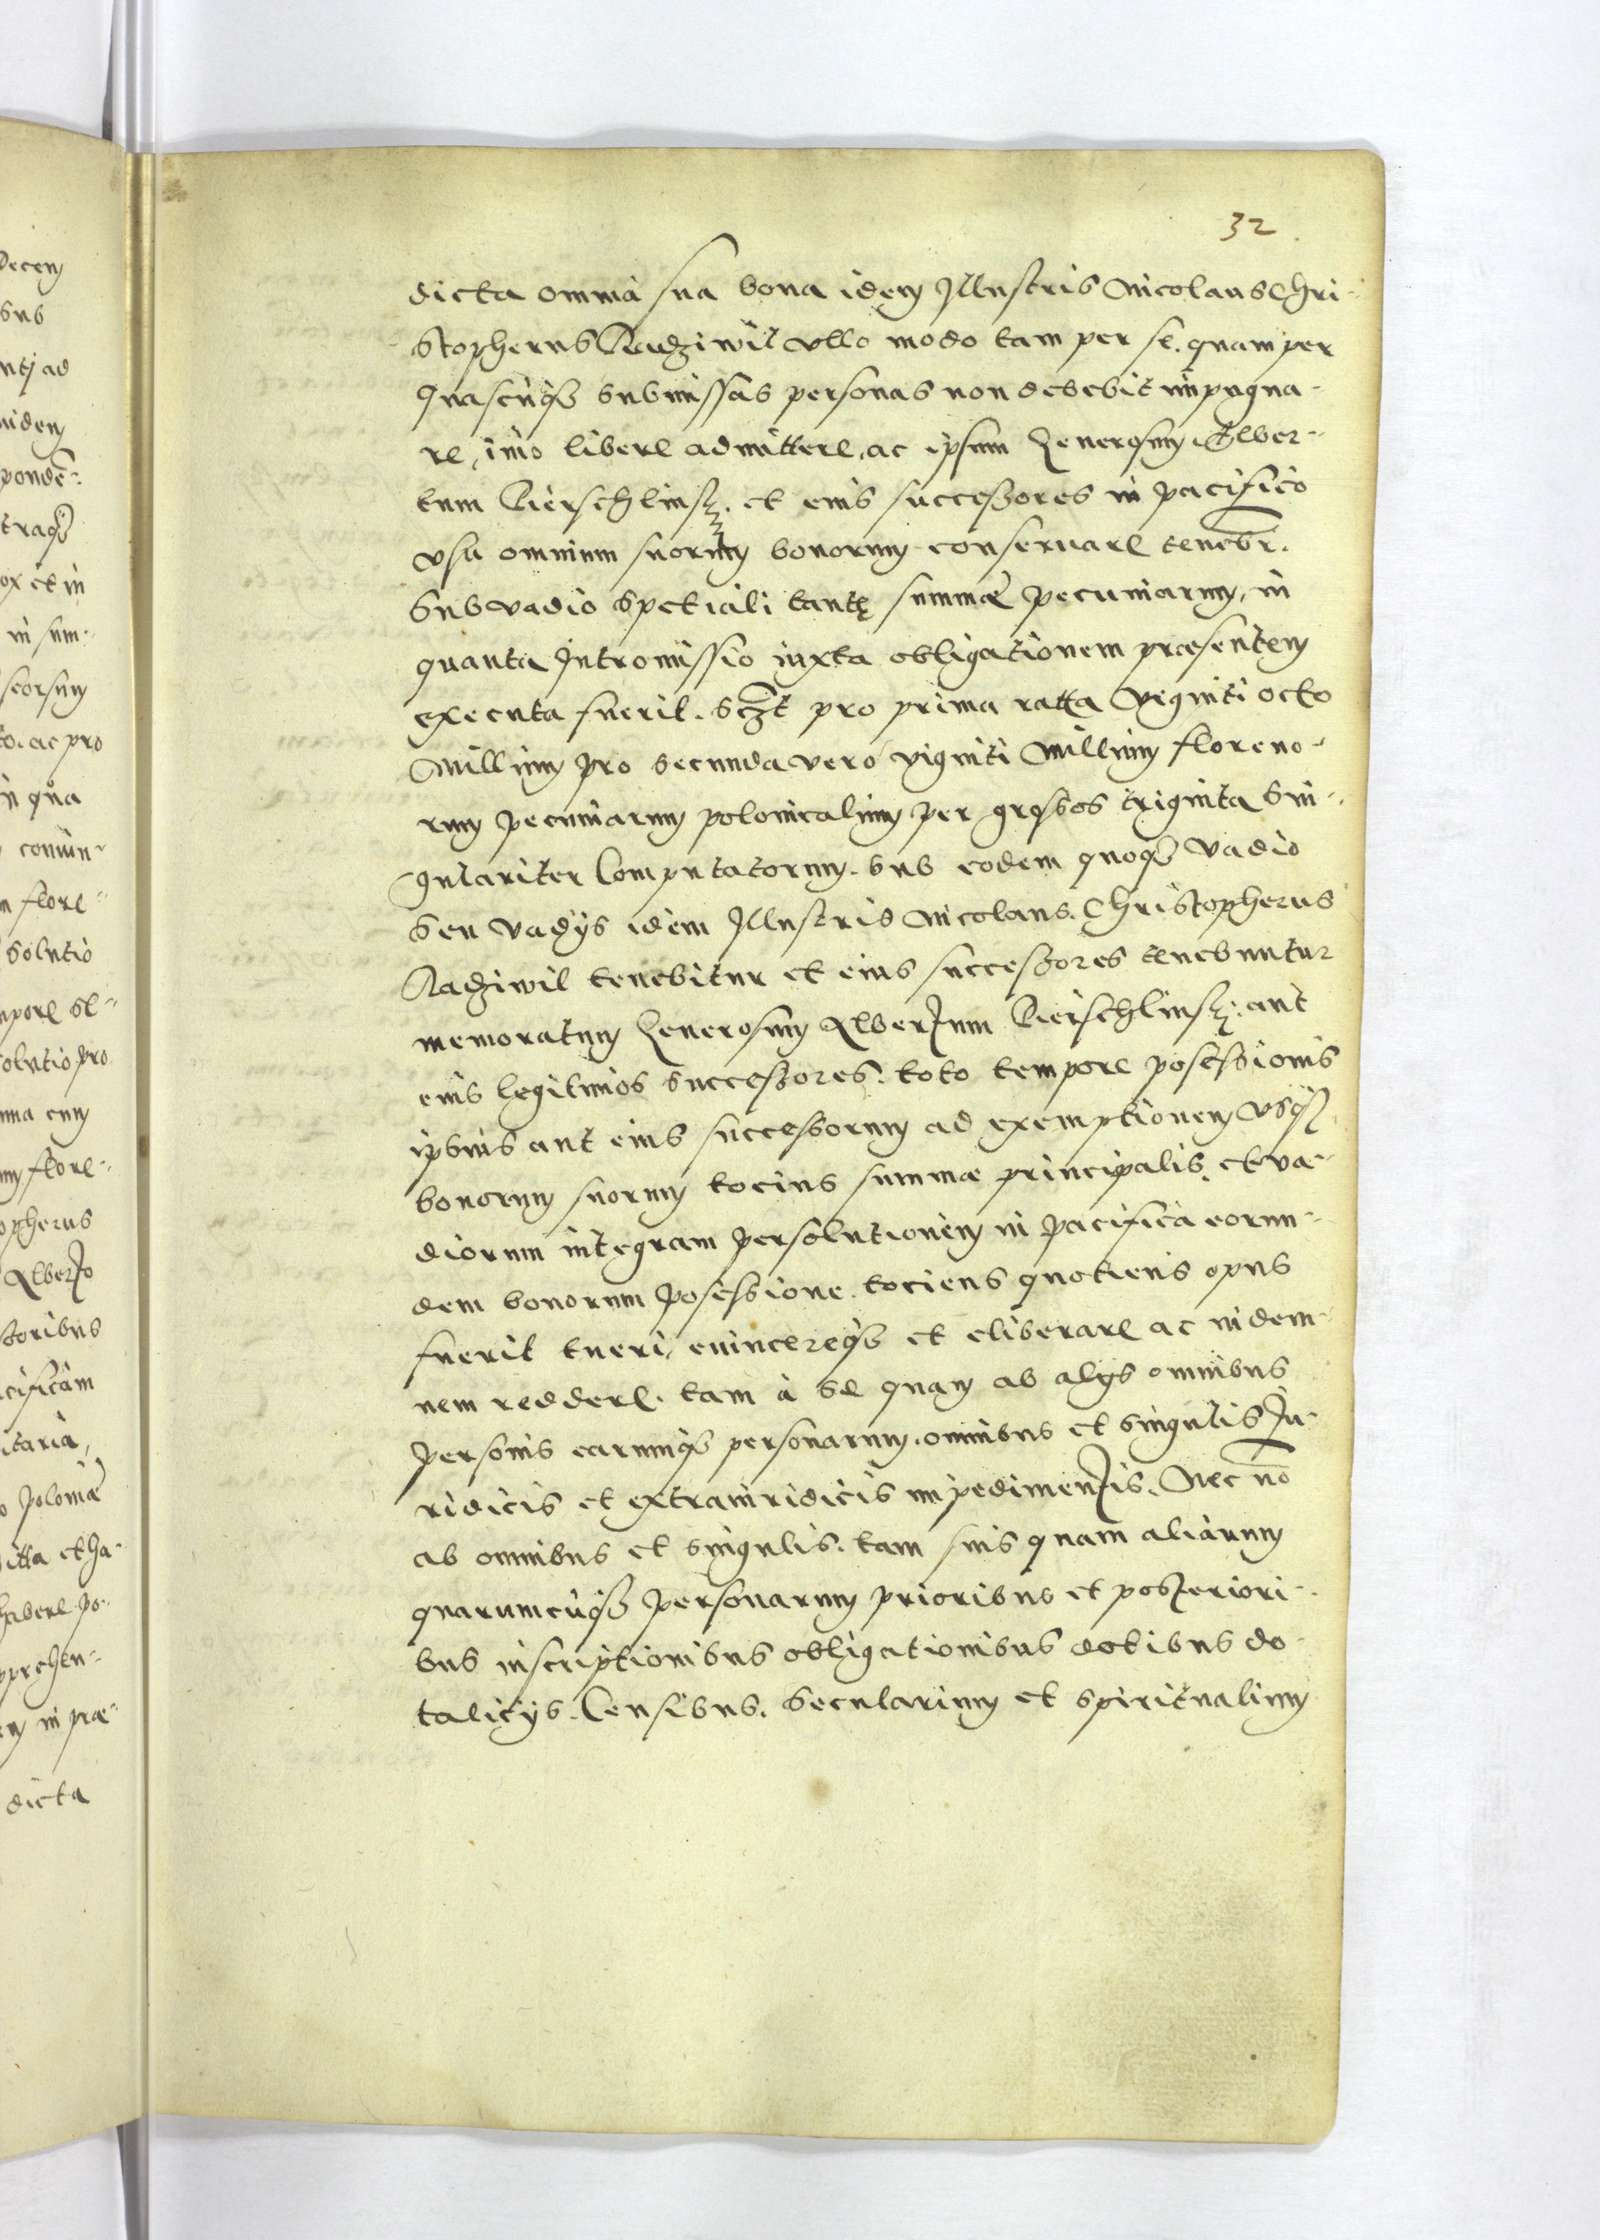 32
dicta omnia sua bona idem Illustris Nicolaus Chri-
stopherus Radziwil vllo modo tam per se, quam per
quascūq3 submissas personas non debebit impugna-
re, imo libere admittere, ac ipsum Generosum Alber-
tum Bierschlinsk. et eius successores in pacifico
vsu omnium suorum bonorum conseruare teneb̄r.
Sub vadio spetiali tantę summæ pecuniarum, in
quanta Intromissio iuxta obligationem præsentem
executa fuerit. sczt pro prima ratta viginti octo
Millium pro secunda vero viginti Millium floreno-
rum pecuniarum polonicalium per grossos triginta sin-
gulariter Computatorum. sub eodem quoq3 vadio
Seu vadÿs idem Illustris Nicolaus. Christopherus
Radziwil tenebitur et eius successores tenebuntur
memoratum Generosum Albertum Bierschlinsk: aut
eius legitimos successores. toto tempore posessionis
ipsius aut eius successorum ad exemptionem vsq3
bonorum suorum tocius summæ principalis, et va-
diorum integram persolutionem in pacifica eorun-
dem bonorum posessione. tociens quotiens opus
fuerit tueri, euincereq3 et eliberare ac indem-
nem reddere. tam à se quam ab alÿs omnibus
personis earumq3 personarum. omnibus et singulis Iu-
ridicis et extraiuridicis impedimentis. Nec nō
ab omnibus et singulis. tam suis quam aliarum
quarumcūq3 personarum prioribus et posteriori-
bus inscriptionibus obligationibus dotibus do-
talicÿs. Censibus. Secularium et spiritualium